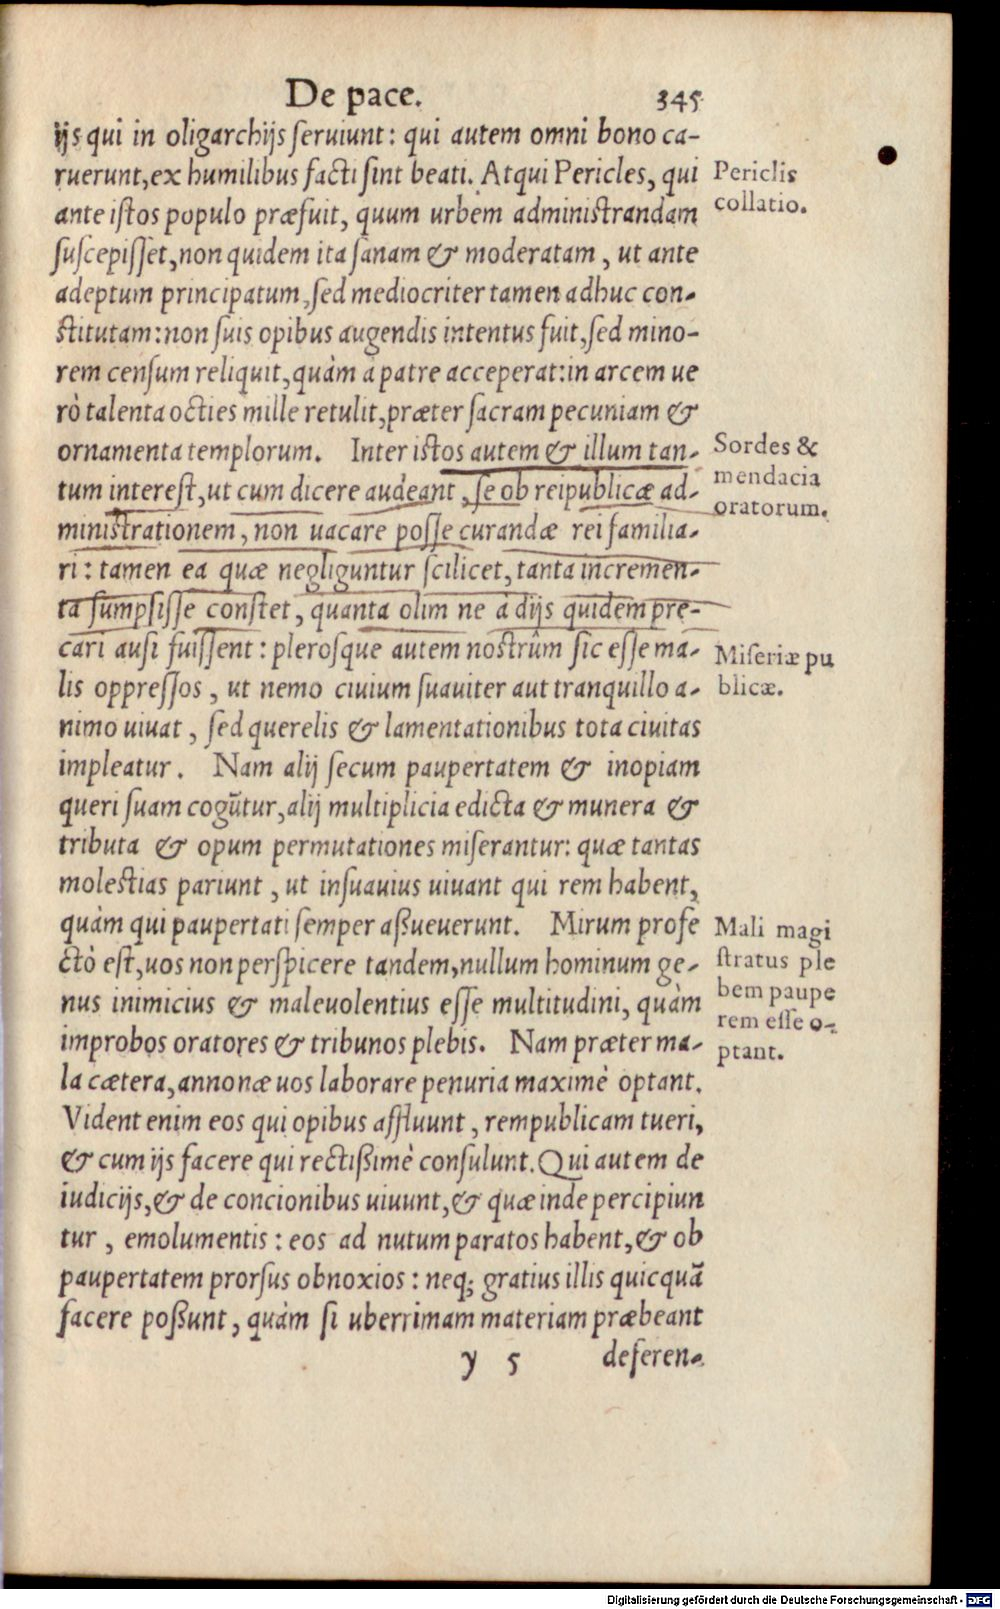 De pace. 345
ijs qui in oligarchijs ſeruiunt: qui autem omni bono ca-
ruerunt, ex humilibus facti ſint beati. Atqui Pericles, qui
ante iſtos populo præfuit, quum urbem adminiſtrandam
ſuſcepiſſet, non quidem ita ſanam & moderatam, ut ante
adeptum principatum, ſed mediocriter tamen adhuc con-
ſtitutam: non ſuis opibus augendis intentus fuit, ſed mino-
rem cenſum reliquit, quàm à patre acceperat: in arcem ue
rò talenta octies mille retulit, præter ſacram pecuniam &
ornamenta templorum. Inter iſtos autem & illum tan-
tum intereſt, ut cum dicere audeant, ſe ob reipublicæ ad-
miniſtrationem, non uacare poſſe curandæ rei familia-
ri: tamen ea quæ negliguntur ſcilicet, tanta incremen-
ta ſumpſiſſe conſtet, quanta olim ne à dijs quidem pre-
cari auſi fuiſſent: pleroſque autem noſtrûm ſic eſſe ma-
lis oppreſſos, ut nemo ciuium ſuauiter aut tranquillo a-
nimo uiuat, ſed querelis & lamentationibus tota ciuitas
impleatur. Nam alij ſecum paupertatem & inopiam
queri ſuam cogūtur, alij multiplicia edicta & munera &
tributa & opum permutationes miſerantur: quæ tantas
moleſtias pariunt, ut inſuauius uiuant qui rem habent,
quàm qui paupertati ſemper aßueuerunt. Mirum profe
ctò eſt, uos non perſpicere tandem, nullum hominum ge-
nus inimicius & maleuolentius eſſe multitudini, quàm
improbos oratores & tribunos plebis. Nam præter ma-
la cætera, annonæ uos laborare penuria maximè optant.
Vident enim eos qui opibus affluunt, rempublicam tueri,
& cum ijs facere qui rectißimè conſulunt. Qui autem de
iudicijs, & de concionibus uiuunt, & quæ inde percipiun
tur, emolumentis: eos ad nutum paratos habent, & ob
paupertatem prorſus obnoxios: neq; gratius illis quicquā
facere poßunt, quàm ſi uberrimam materiam præbeant
y 5 deferen-
Periclis
collatio.
Sordes &
mendacia
oratorum.
Miſeriæ pu
blicæ.
Mali magi
ſtratus ple
bem paupe
rem eſſe o-
ptant.
Digitalisierung gefördert durch die Deutsche Forschungsgemeinschaft - DFG